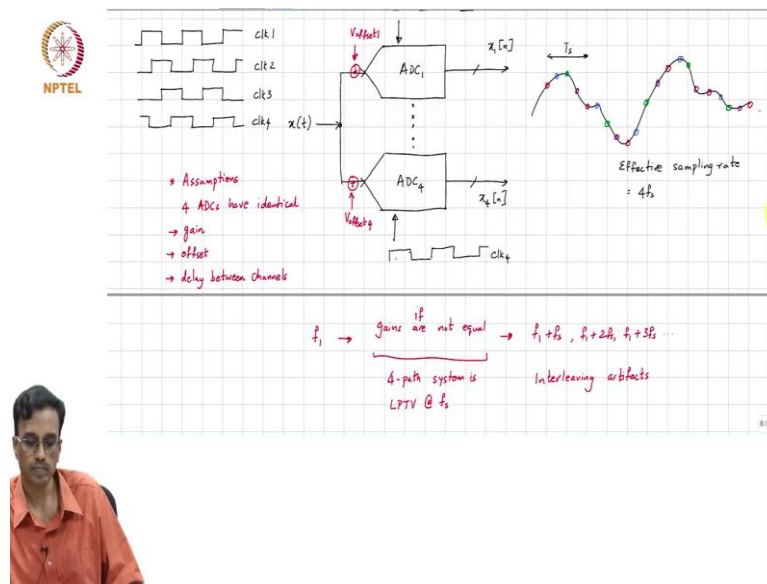 clk1
clk2
clk3
clk4
NPTEL
Voffset1
ADC1
x1[n]
Ts
x(t)
ADC4
x4[n]
Voffset4
clk4
Effective sampling rate
= 4fs
* Assumptions
4 ADCs have identical
→ gain
→ offset
→ delay between channels
if
f1 → gains are not equal → f1+fs, f1+2fs, f1+3fs ...
4-path system is
LPTV @ fs
Interleaving artifacts